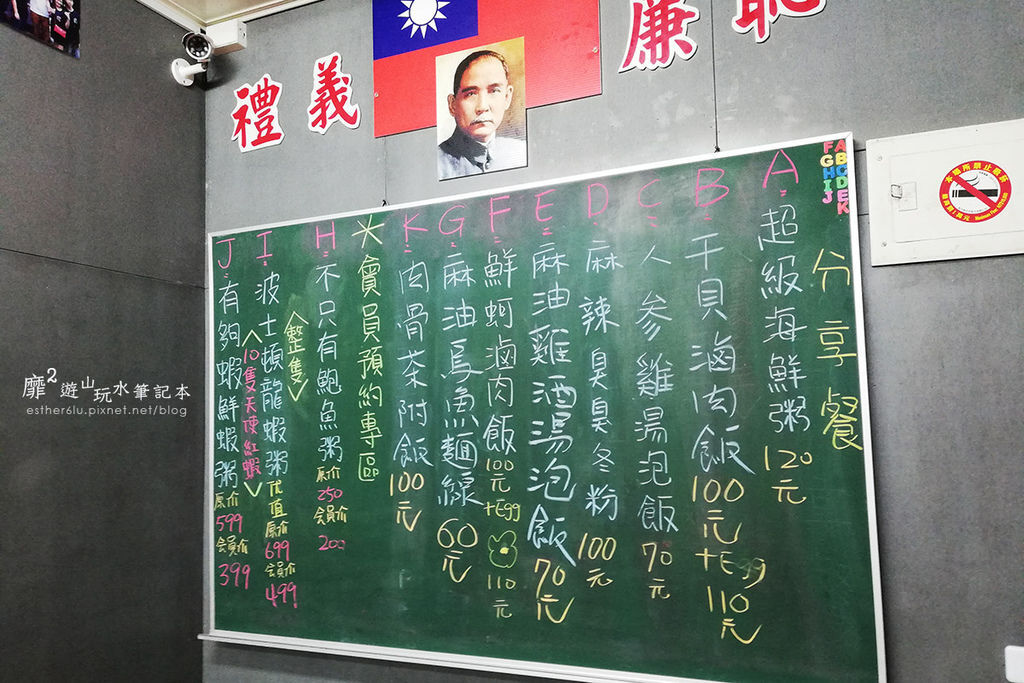 禮
義
廉
恥
FA
GB
HC
ID
JE
K
分享餐
A=超級海鮮粥 120元
B=干貝滷肉飯 100元 +Egg 110元
C=人参雞湯泡飯 70元
D=麻辣臭臭冬粉 100元
E=麻油雞酒湯泡飯 70元
F=鮮蚵滷肉飯 100元 +Egg 110元
G=麻油烏魚麵線 60元
K=肉骨茶附飯 100元
*會員預約專區
H=不只有鮑魚粥 原介 250 会員介 200
<整隻>
I=波士頓龍蝦粥 代值 原介 699 会員介 499
<10隻天使紅蝦>
J=有夠蝦鮮蝦粥 原介 599 会員介 399
本場所禁止吸菸
靡2遊山玩水筆記本
esther6lu.pixnet.net/blog